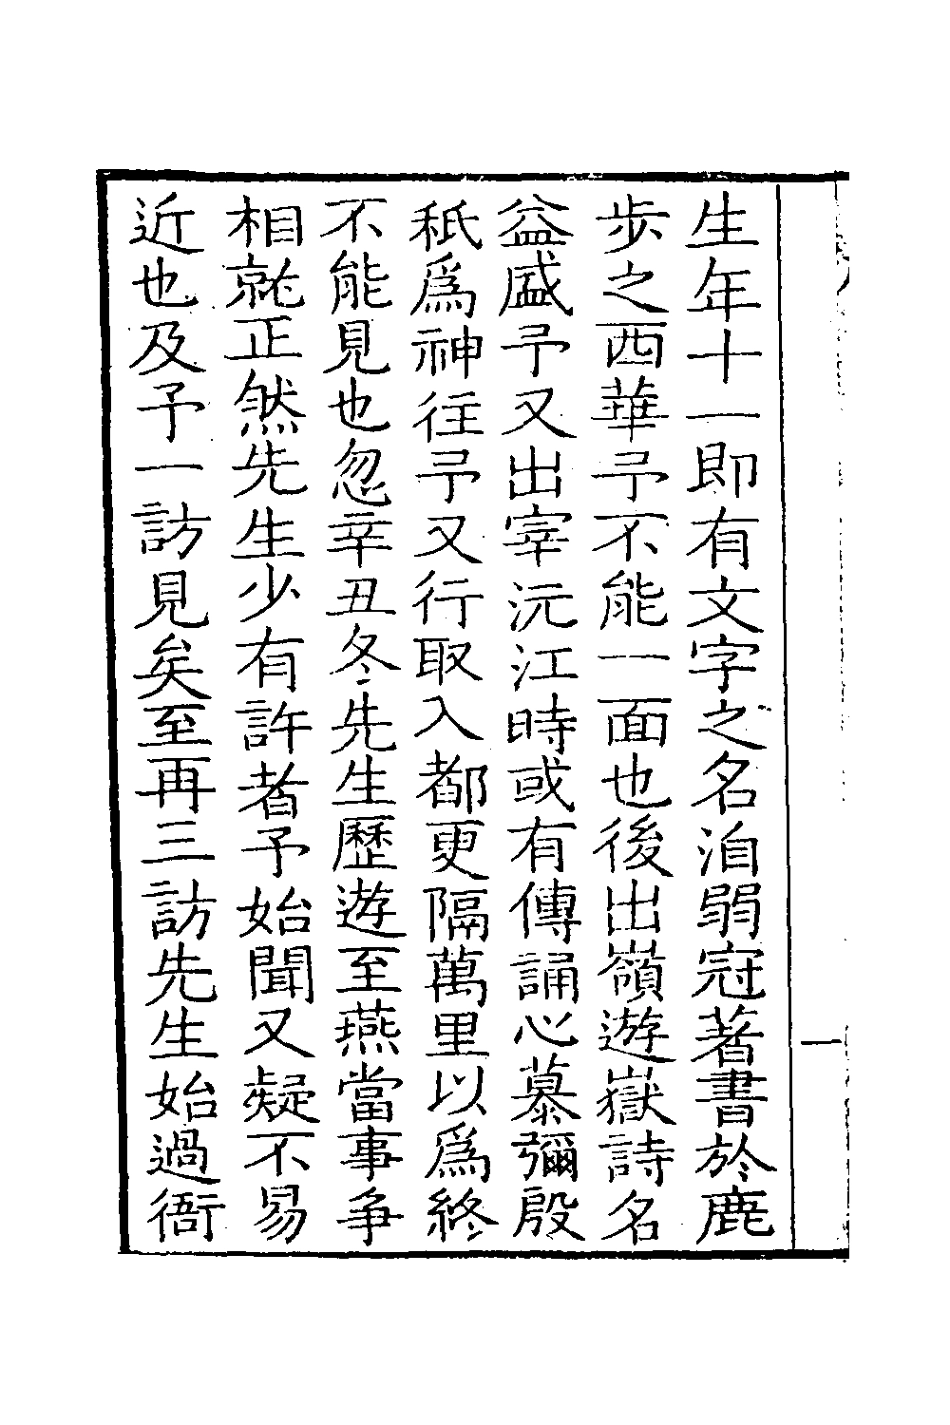 生年十一即有文字之名洎弱冠著書於鹿
步之西華予不能一面也後出嶺遊嶽詩名
益盛予又出宰沅江時或有傳誦心慕彌殷
秖為神往予又行取入都更隔萬里以為終
不能見也忽辛丑冬先生歷遊至燕當事爭
相就正然先生少有許者予始聞又疑不易
近也及予一訪見矣至再三訪先生始過衙
一